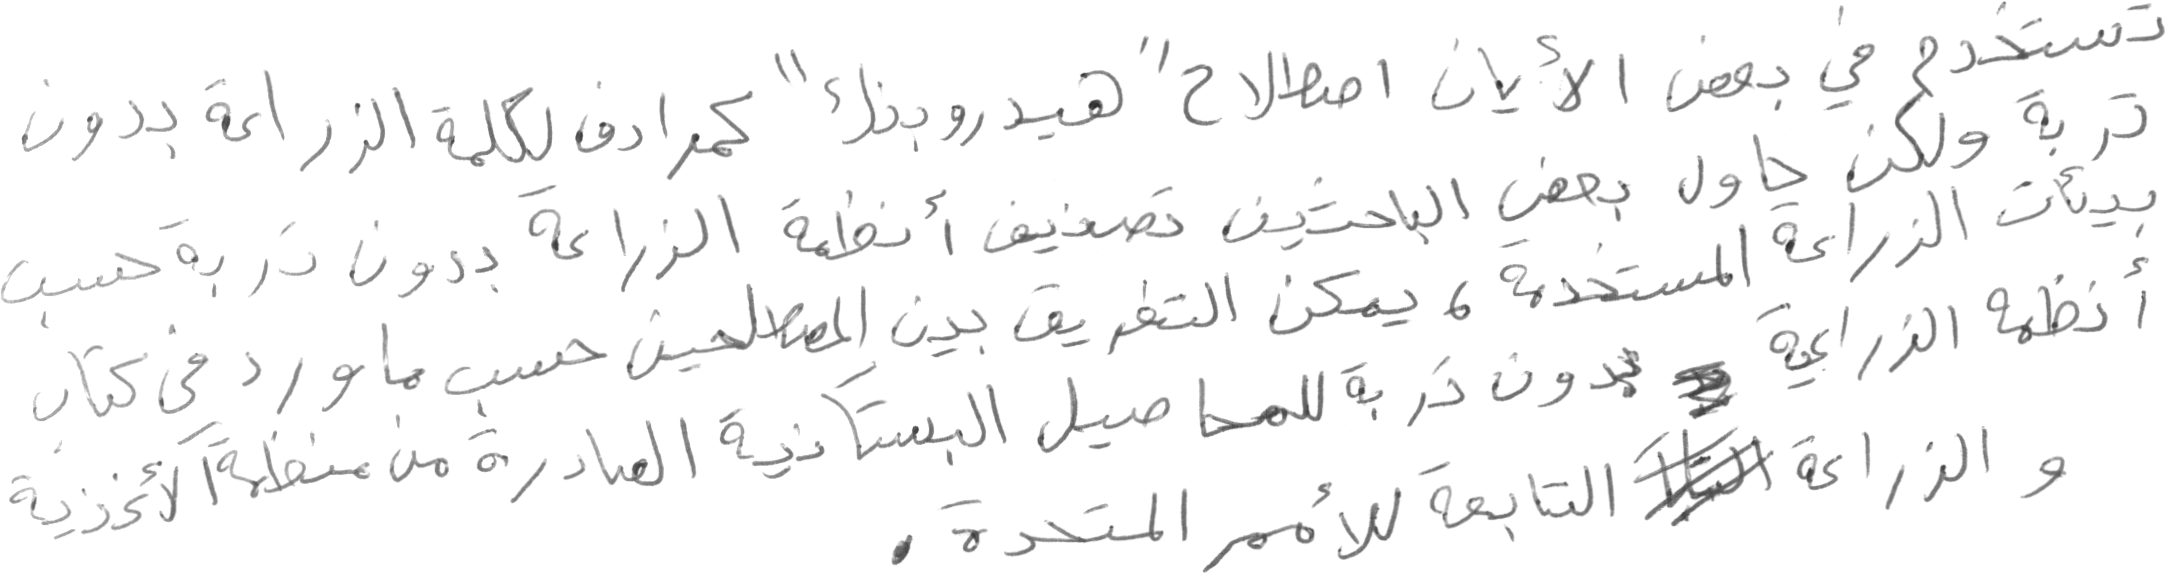 تستخدم في بعض الأيان اصطلاح "هيدروبنك" كمرادف لكلمة الزراعة بدون
تربة ولكن حاول بعض الباحثين تصنيف أنظمة الزراعة بدون تربة حسب
بيئات الزراعة المستخدمة، يمكن التفريق بين المصطلحين حسب ما ورد في كتاب
أنظمة الزراعية بدون تربة للمحاصيل البستانية الصادرة من منظمة الأغذية
و الزراعة التابعة للأمم المتحدة.